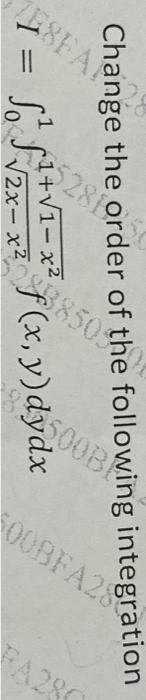 Change the order of the following integration
I = ∫₀¹ ∫_{√(2x−x²)}^{1+√(1−x²)} f(x, y)dydx